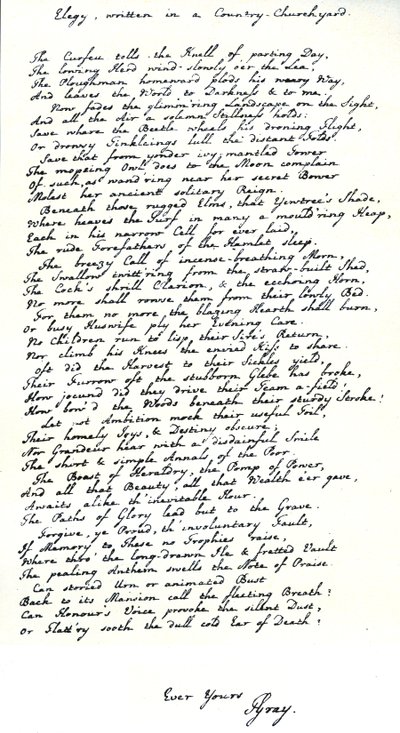 Elegy, written in a Country-Churchyard.
The Curfeu tolls the Knell of parting Day,
The lowing Herd wind slowly o'er the Lea,
The Ploughman homeward plods his weary Way,
And leaves the World to Darkness & to me.
Now fades the glimm'ring Landscape on the Sight,
And all the Air a solemn Stillness holds:
Save where the Beetle wheels his droning Flight,
Or drowsy Tinkleings lull the distant Folds.
Save that from yonder ivy-mantled Tower
The mopeing Owl does to the Moon complain
Of such, as wand'ring near her secret Bower
Molest her ancient solitary Reign.
Beneath those rugged Elms, that Yewtree's Shade,
Where heaves the Turf in many a mould'ring Heap,
Each in his narrow Cell for ever laid,
The rude Forefathers of the Hamlet sleep.
The breezy Call of incense-breathing Morn,
The Swallow twitt'ring from the straw-built Shed,
The Cock's shrill Clarion, & the ecchoing Horn,
No more shall rowse them from their lowly Bed.
For them no more the blazing Hearth shall burn,
Or busy Huswife ply her Evening Care.
No Children run to lisp their Sire's Return,
Nor climb his Knees the envied Kiss to share.
Oft did the Harvest to their Sickles yield,
Their Furrow oft the stubborn Glebe has broke,
How jocund did they drive their Team a-field!
How bow'd the Woods beneath their sturdy Stroke!
Let not Ambition mock their useful Toil,
Their homely Joys, & Destiny obscure;
Nor Grandeur hear with a disdainful Smile
The short & simple Annals of the Poor.
The Boast of Heraldry, the Pomp of Power,
And all that Beauty, all that Wealth e'er gave,
Awaits alike th' inevitable Hour.
The Paths of Glory lead but to the Grave.
Forgive, ye Proud, th' involuntary Fault,
If Memory to These no Trophies raise,
Where thro' the long-drawn Ile & fretted Vault
The pealing Anthem swells the Note of Praise.
Can storied Urn or animated Bust
Back to its Mansion call the fleeting Breath?
Can Honour's Voice provoke the silent Dust,
Or Flatt'ry sooth the dull cold Ear of Death?
Ever Yours
TGray.